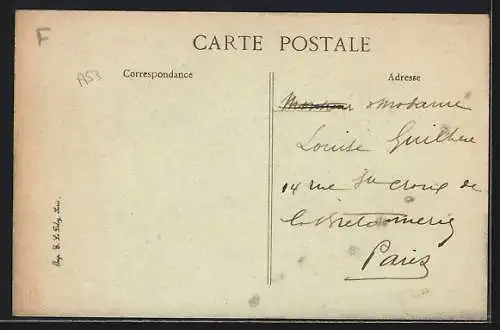 F
CARTE POSTALE
A53
Correspondance
Adresse
Monsieur & Madame
Louise Guilhem
14 rue Ste Croix de
la Bretonnerie
Paris
Imp. E. Le Deley, Paris.